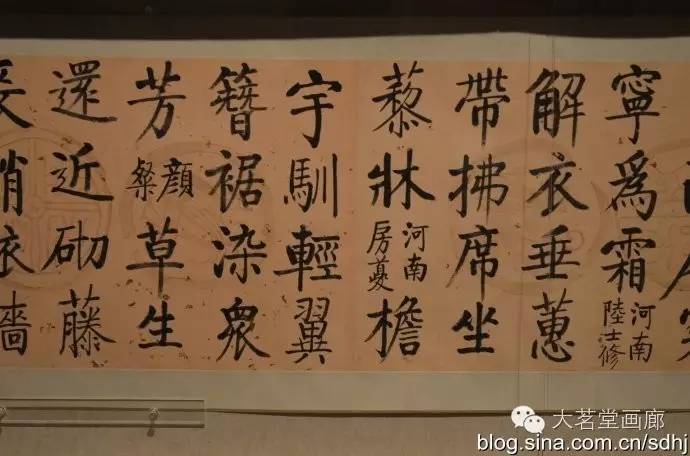 寧爲霜河南陸士修
解衣垂蕙
帶拂席坐
藜牀河南房夔檐
宇馴輕翼
簪裾染衆
芳顏粲草生
還近砌藤
大茗堂画廊
blog.sina.com.cn/sdhj